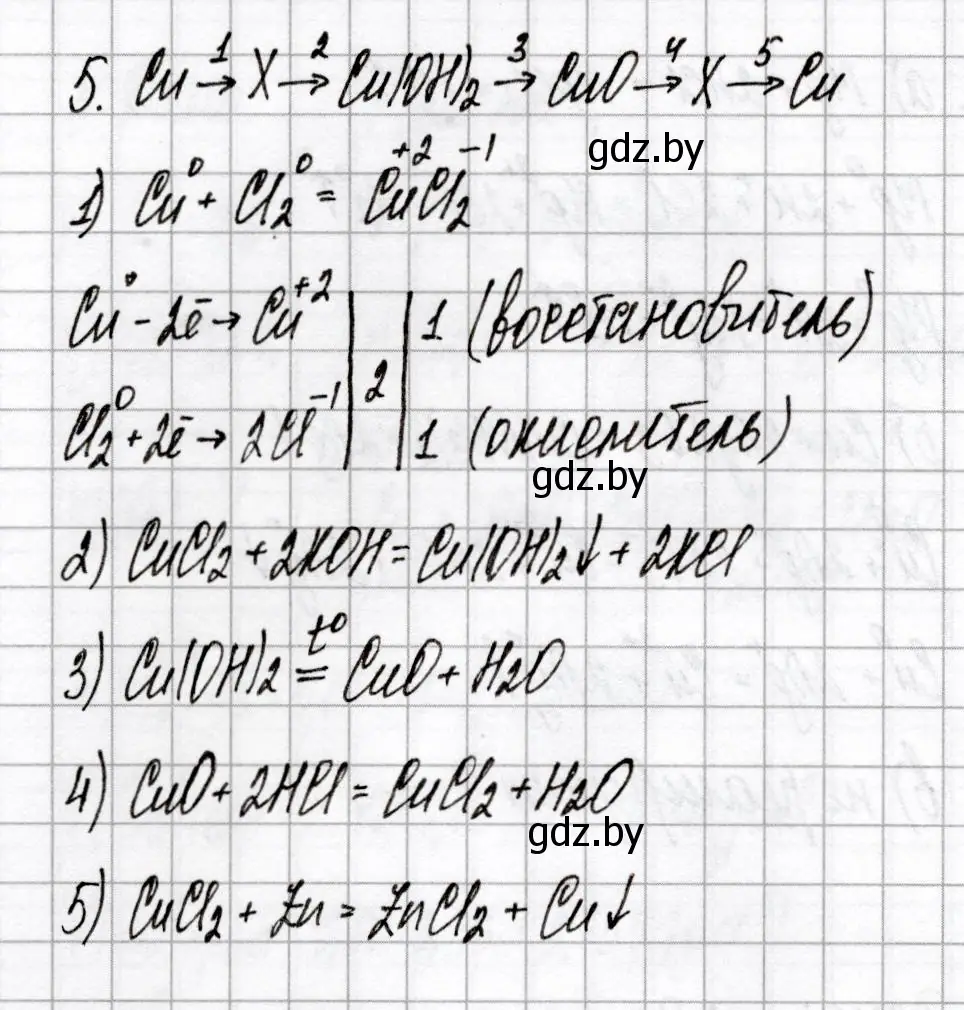 5. Cu →¹ X →² Cu(OH)₂ →³ CuO →⁴ X →⁵ Cu
gdz.by
1) Cu⁰ + Cl₂⁰ = Cu⁺²Cl₂⁻¹
Cu⁰ - 2ē → Cu⁺² | | 1 (восстановитель)
| 2 |
Cl₂⁰ + 2ē → 2Cl⁻¹ | | 1 (окислитель)
gdz.by
2) CuCl₂ + 2KOH = Cu(OH)₂↓ + 2KCl
3) Cu(OH)₂ =^t⁰ CuO + H₂O
4) CuO + 2HCl = CuCl₂ + H₂O
gdz.by
5) CuCl₂ + Zn = ZnCl₂ + Cu↓